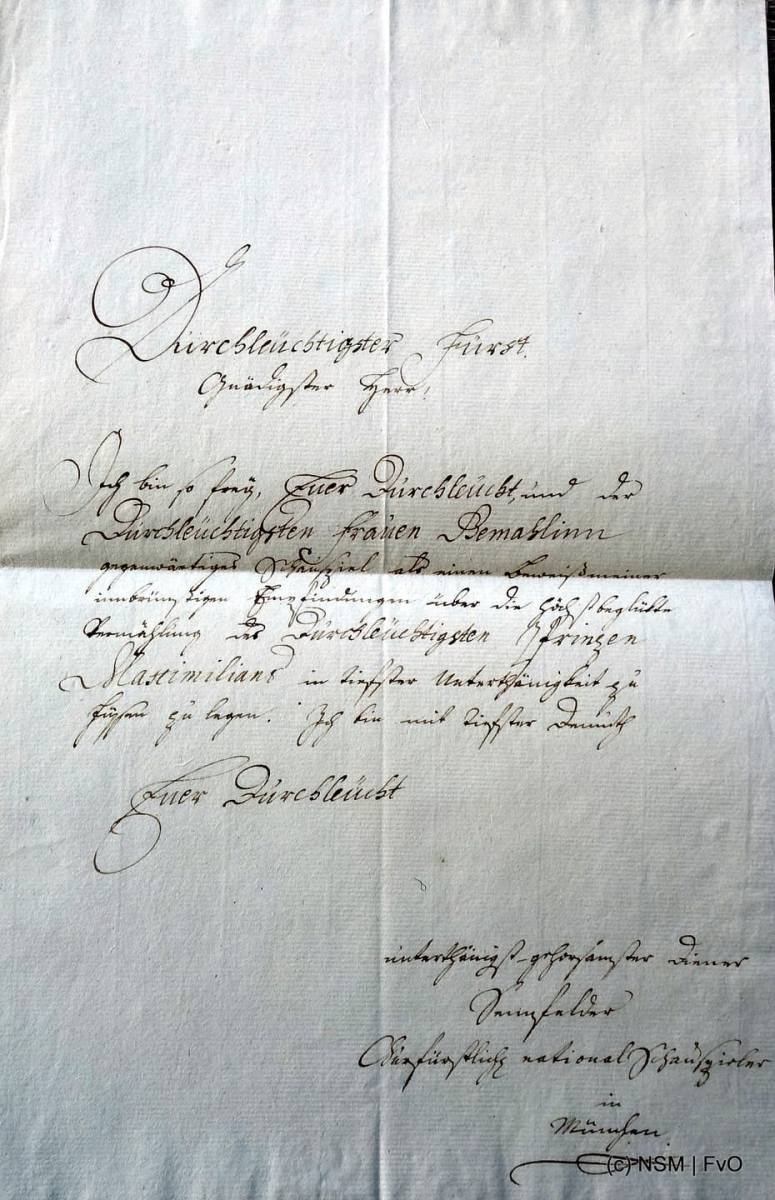 Durchleüchtigster Fürst.
Gnädigster Herr!
Ich bin so freÿ, Euer Durchleücht, und der
Durchleüchtigsten Frauen Gemahlinn
gegenwärtiges Schauspiel als einen Beweiß meiner
innbrünstigen Empfindungen über die höchstbeglückte
Vermählung des Durchleüchtigsten Prinzen
Maximilians in tiefster Unterthänigkeit zu
Füssen zu legen. Ich bin mit tiefster Demuth
Euer Durchleücht
unterthänigst-gehorsamster Diener
Sennefelder
Churfürstlich national Schauspieler
in
München.
(c) NSM | FvO